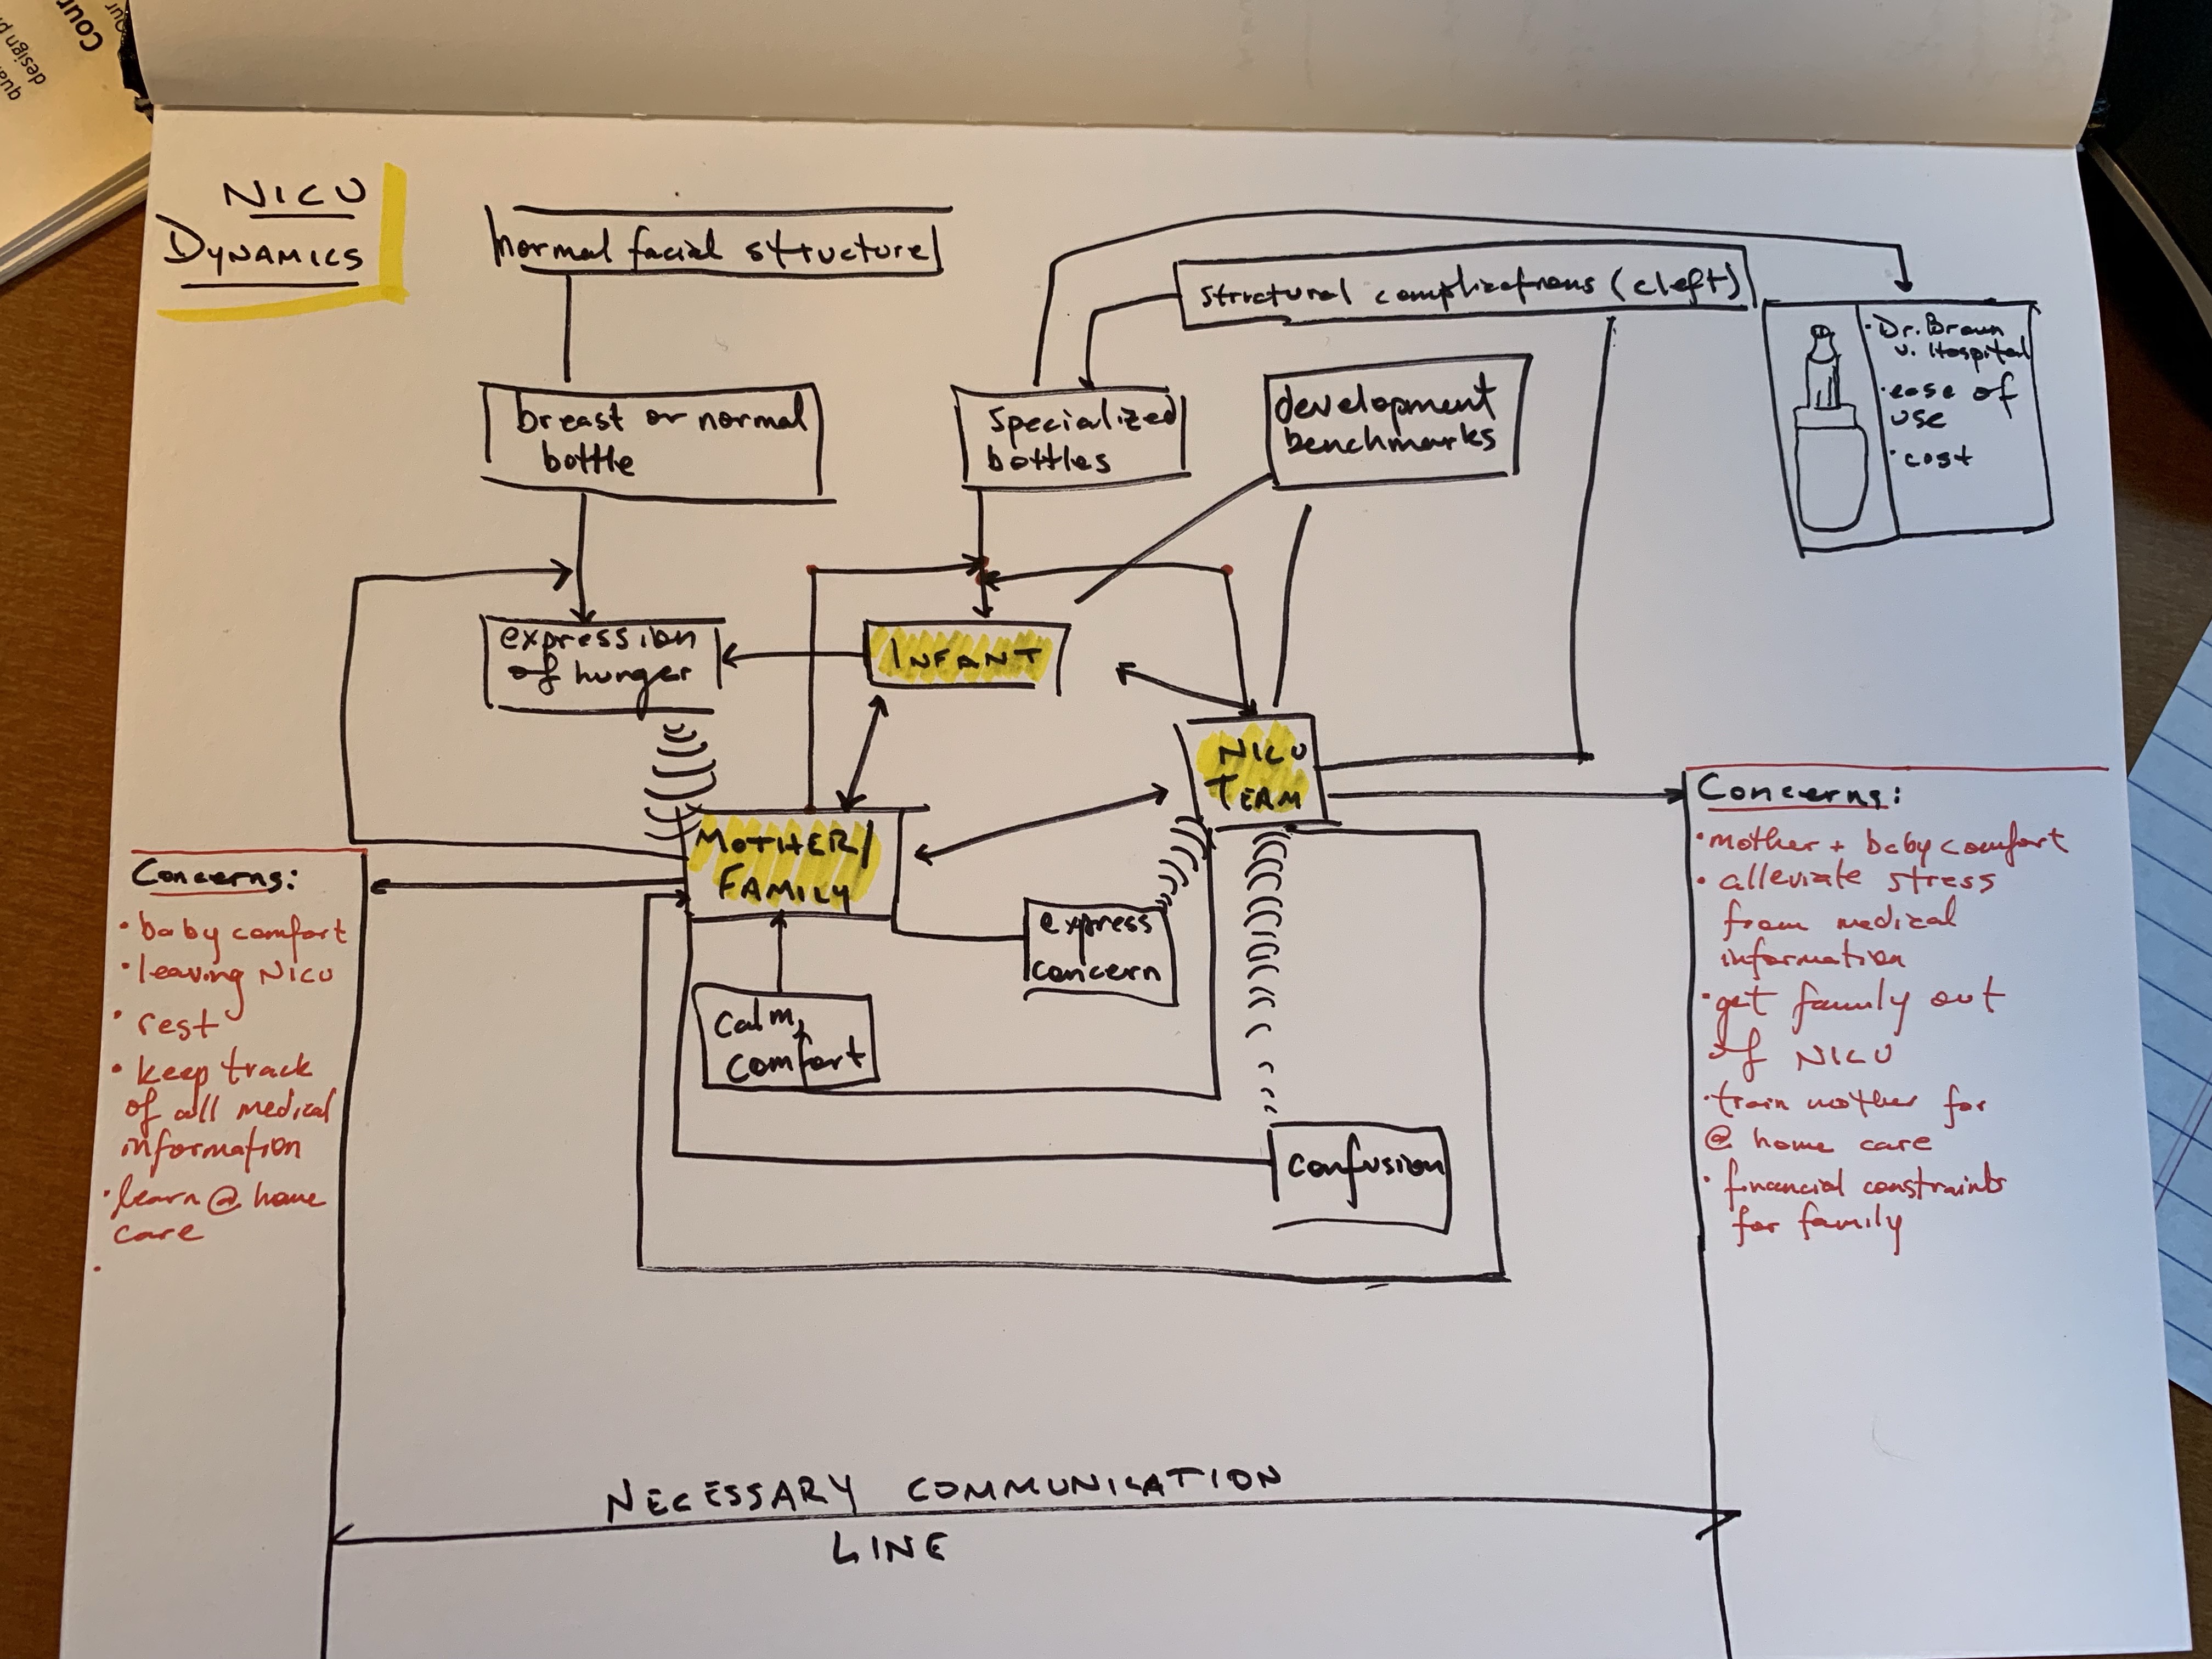 Cour
Our
design pr
qua
NICU
DYNAMICS
normal facial structure
structural complications (cleft)
breast or normal
bottle
specialized
bottles
development
benchmarks
• Dr. Brown
v. Hospital
• ease of
use
• cost
expression
of hunger
INFANT
NICU
TEAM
MOTHER/
FAMILY
express
concern
calm,
comfort
confusion
Concerns:
• baby comfort
• leaving NICU
• rest
• keep track
of all medical
information
• learn @ home
care
•
Concerns:
• mother + baby comfort
• alleviate stress
from medical
information
• get family out
of NICU
• train mother for
@ home care
• financial constraints
for family
NECESSARY COMMUNICATION
LINE